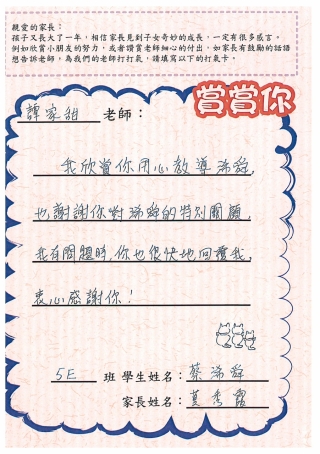 親愛的家長：
孩子又長大了一年，相信家長見到子女奇妙的成長，一定有很多感言。
例如欣賞小朋友的努力，或者讚賞老師細心的付出，如家長有鼓勵的話語
想告訴老師，為我們的老師打打氣，請填寫以下的打氣卡。
賞賞你
譚家甜 老師：
我欣賞你用心教導浠舜，
也謝謝你對浠舜的特別關顧，
我有問題時，你也很快地回覆我，
衷心感謝你！
5E 班 學生姓名：蔡浠舜
家長姓名：莫秀霞